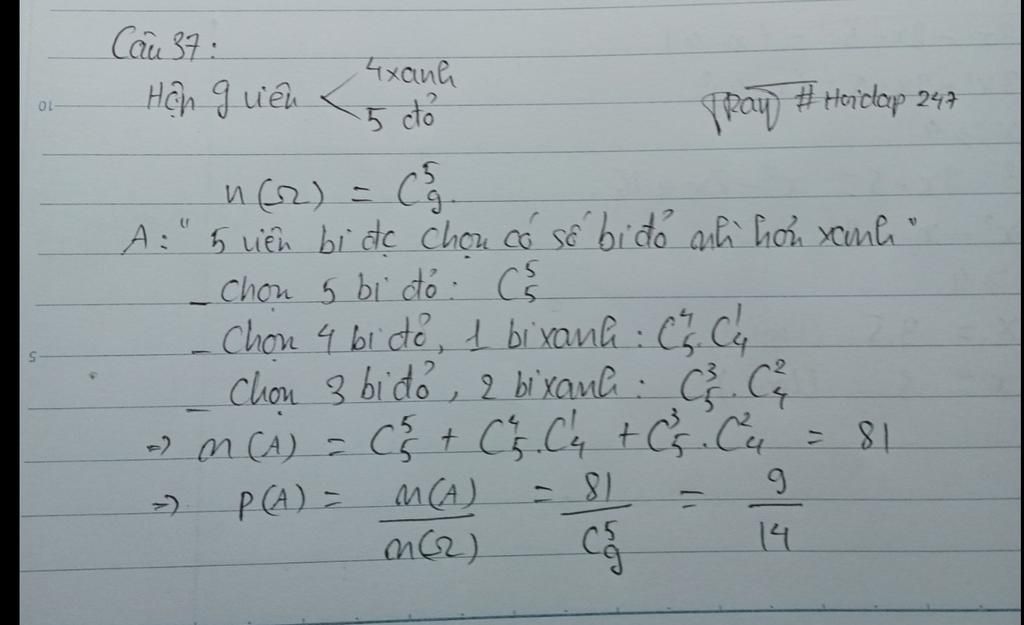 Câu 37:
Hộp 9 viên < 4 xanh
5 đỏ
#Hoidap 247
10
n(Ω) = C⁵₉.
A: "5 viên bi đc chọn có số bi đỏ nhì hơn xanh"
- Chọn 5 bi đỏ: C⁵₅
- Chọn 4 bi đỏ, 1 bi xanh: C⁴₅.C¹₄
5
- Chọn 3 bi đỏ, 2 bi xanh: C³₅.C²₄
=> n(A) = C⁵₅ + C⁴₅.C¹₄ + C³₅.C²₄ = 81
=> P(A) = n(A)/n(Ω) = 81/C⁵₉ = 9/14